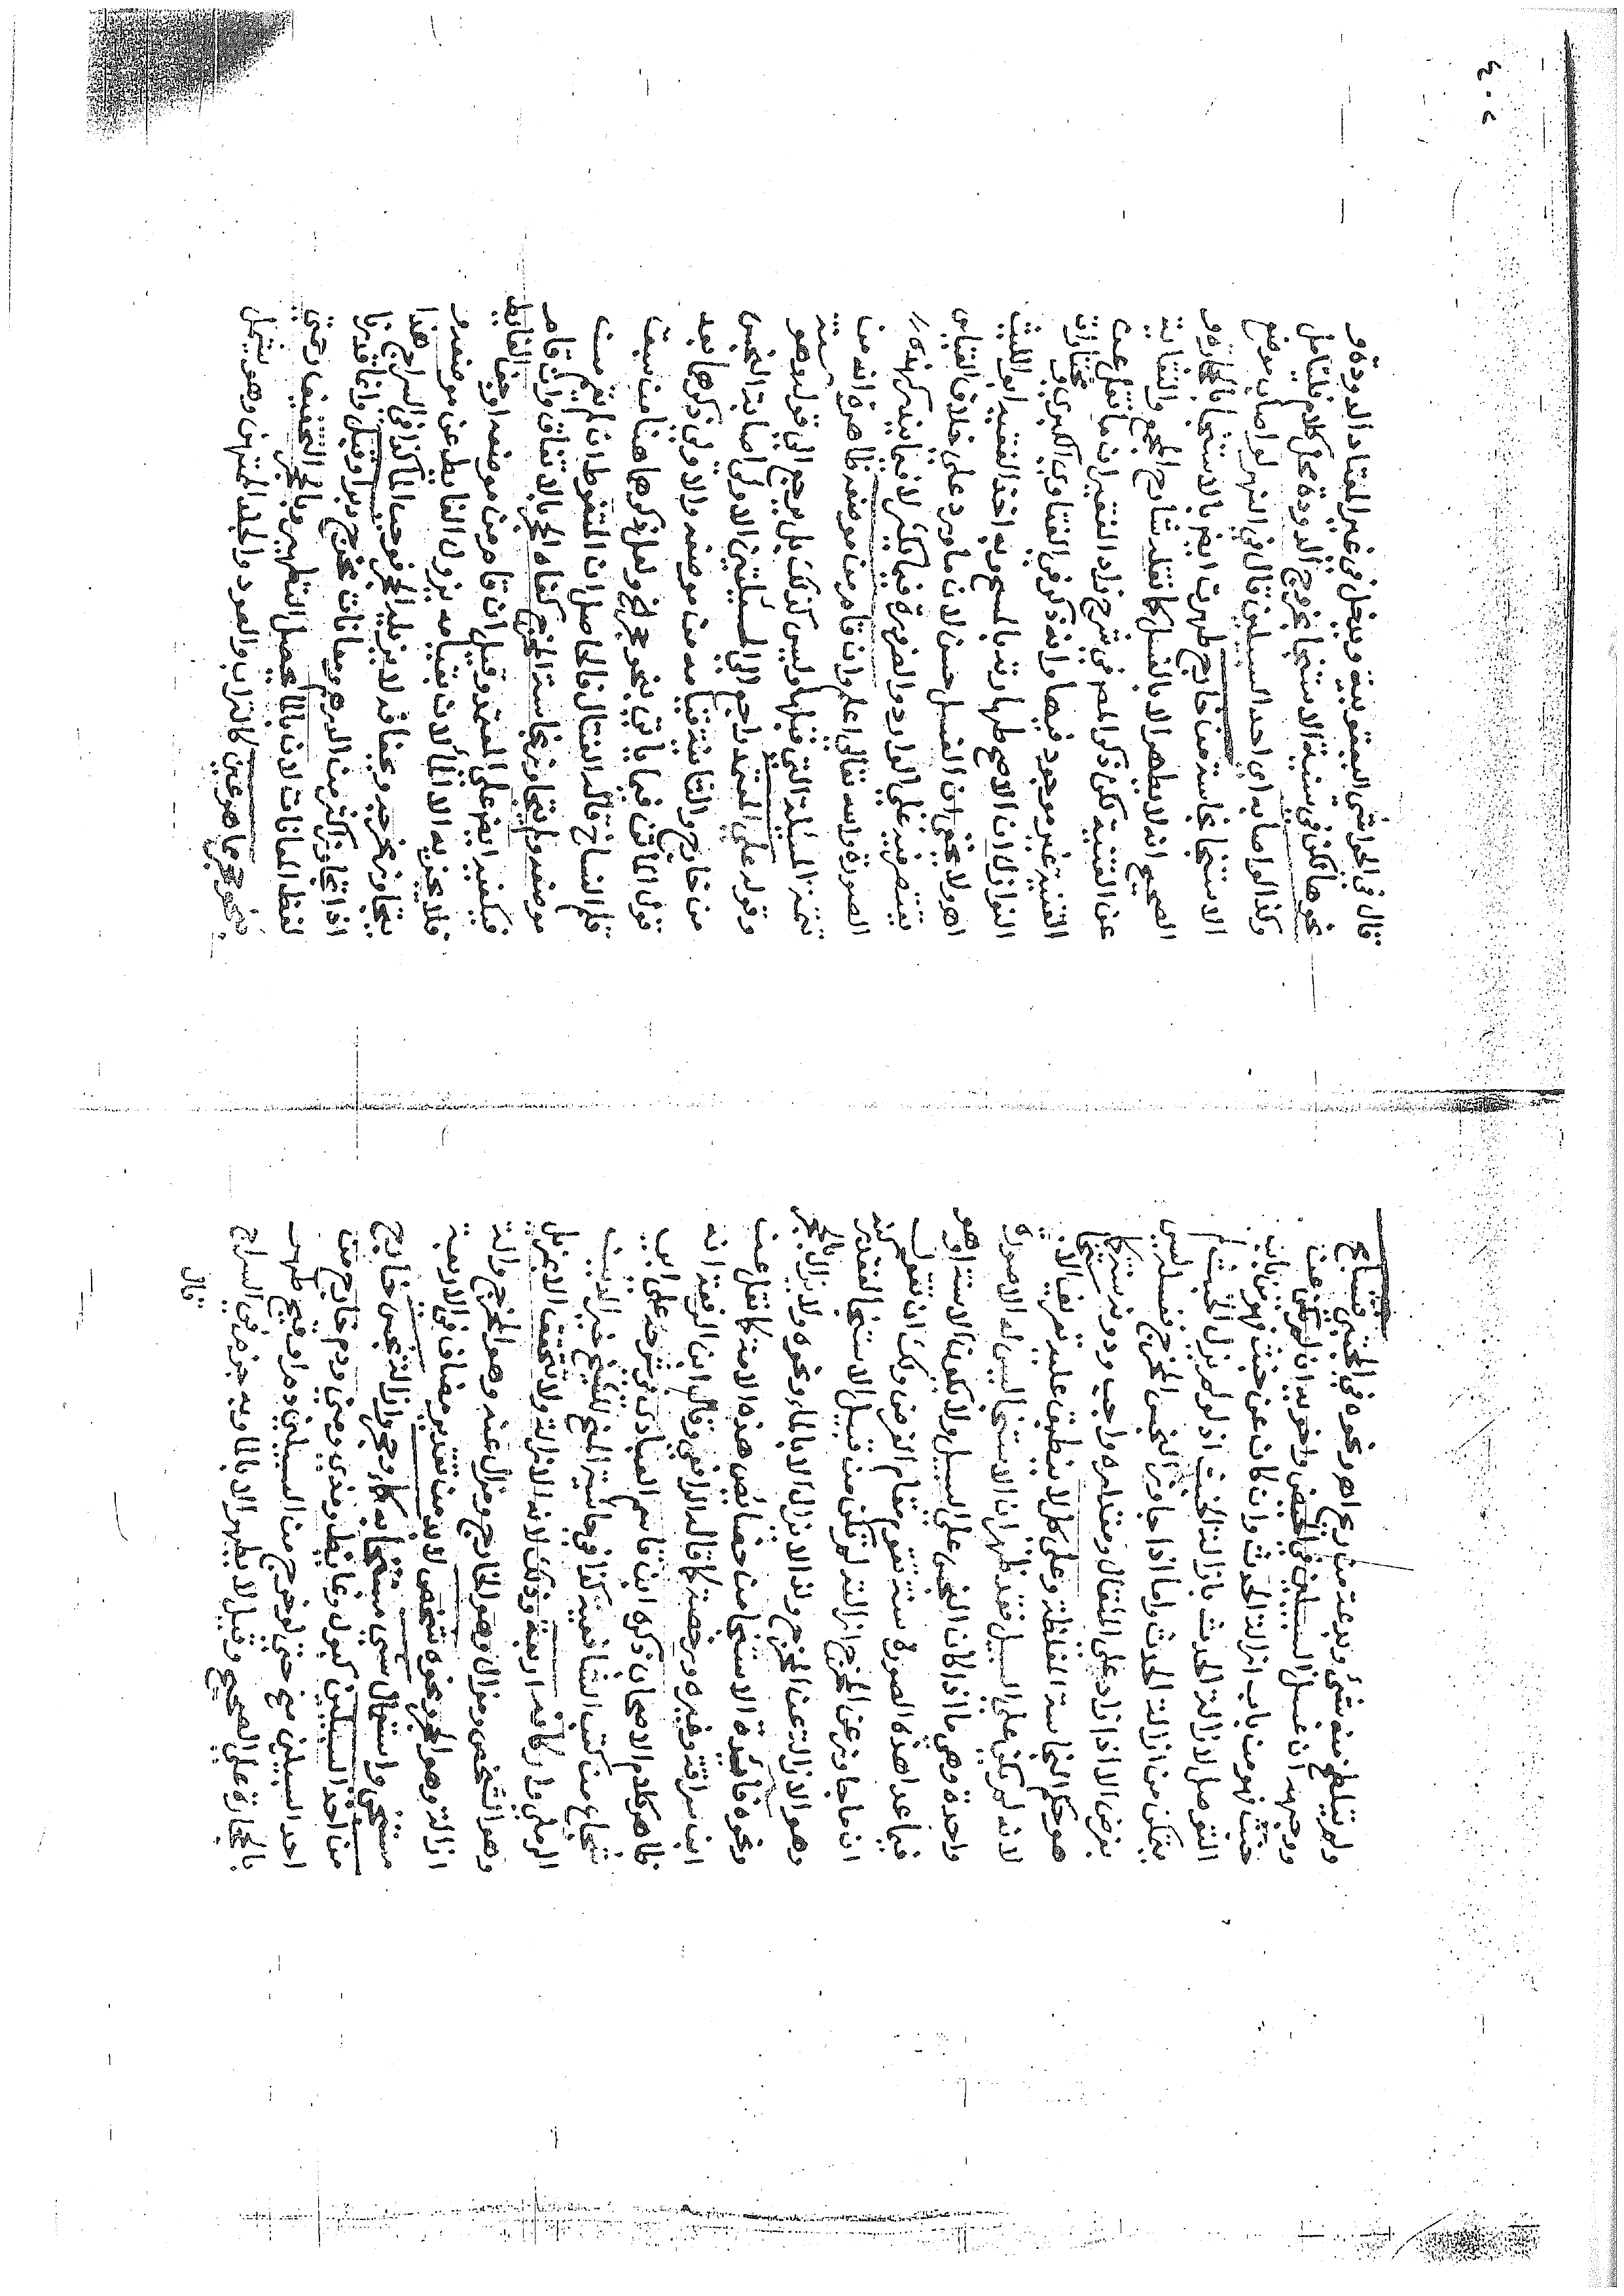 ولم يتلطخ منه شئ وبدعة من ريح اهـ ونحوه في المجتبى
ووجهه ان غسل السبيلين في الحيض واخويه ان لم يكن عن
خبث فهو من باب ازالة الحدث وان كان عن خبث فهو من باب
التوصل لازالة الحدث بازالة الخبث اذ لو لم يزل الخبث لم
يتمكن من ازالة الحدث واما اذا جاوز النجس المخرج فغسله ليس
بفرض الا اذا زاد على المثقال ومقداره واجب ودونه سنة كما
هو حكم النجاسة المغلظة وعلى كل لا ينطبق عليه تعريف
لانه لم يكن على السبيل فقد ظهر ان الاستنجا ليس له الا صورة
واحدة وهي ما اذا كان النجس على السبيل ولا يكون الا سنة
فيما عدا هذه الصورة سنة تقوم مقام الفرض ويمكن ان تقول
ان ما جاوز عن المخرج ازالته لم تكن من قبيل الاستنجا لفقد ركنه
وهو الازالة عن المخرج ولذا لا تزال الا بالماء ونحوه ولا يزال بالحجر
ونحوه فائدة الاستنجا من خصائص هذه الامة كما نقل عن
ابن سراقة وغيره ورخصة كما قاله الرافعي وقال ابن الرفعة انه
ظاهر كلام الاصحاب ذكره ابن قاسم العبادي في شرحه على ابي
شجاع من كتب الشافعية كذا في حاشية المنح للشيخ خير الدين
الرملي واركانه اربعة وذلك لانه ازالة ولا تتحقق الا بمزيل
وهو الشخص ومزال وهو الخارج ومزال عنه وهو المخرج والة
ازالة وهو الحجر ونحوه شخص لا بد من تقدير مضاف في الاربعة
مستنج واستعمال شي مستنجا به كماء وحجر وازالة نجس خارج
من احد السبيلين كبول وغايط ومذي ومني ودم خارج من
احد السبيلين حتى لو خرج من السبيلين دم او قيح طهرت
بالحجارة على الصحيح وقيل لا يطهر الا بالماء وبه جزم في السراج
قال
قال في الحواشي اليعقوبية ويدخل في غير المعتاد الدودة و
نحوها لكن في سنية الاستنجا بخروج الدودة محل كلام فليتامل
وكذا لو اصابه اي احد السبيلين قال في النهر لو اصاب موضع
الاستنجا نجاسة من خارج طهرت ايضا بالاستنجا بالحجارة و
الصحيح انه لا يطهر الا بالغسل كما نقله شارح المجمع والنقاية
عن القنية لكن ذكر المص في شرح زاد الفقير ان ما نقل عن
القنية غير موجود فيها وانه ذكر في الفتاوى الكبرى و مختارات
النوازل ان الاصح طهارته بالمسح وبه اخذ الفقيه ابو الليث
اهـ ولا يخفى ان الغسل حسن لان ما ورد على خلاف القياس
يقتصر فيه على الوارد والضرورة فيما يكثر لا فيما يندر كهذه
الصورة والله تعالى اعلم وان قام من موضعه ظاهره انه من
تتمة المسئلة التي قبلها وليس كذلك بل مرجع الى قوله وهو سنة
وقوله على المعتمد راجع الى المسئلتين الاولى اصابة النجس
من خارج والثانية قيامه من موضعه والاولى ذكرها بعد
قول الماتن فيما ياتي بنحو حجر الخ ولعل ذكرها هنا من سبق
قلم النساخ قاله الفتال فالحاصل ان المتغوط ان لم يقم من
موضعه ولم يتجاوز نجاسته المخرج كفاه الحجر بالاتفاق وان قام
فيكفيه ايضا على المعتمد وقيل ان قام من موضعه او جف الغائط
فلا يجزيه الا الماء لان بقيامه يزول الغائط عن موضعه و
يتجاوز مخرجه وبجفافه لا يزيله الحجر فوجب الماء كذا في السراج هذا
اذا تجاوز اكثر من الدرهم ومائعات مخرج دبر او قبل وانما قيدنا
لفظ المائعات لان بالماء يحصل التطهير وبالحجر التخفيف
بنحو حجر مما هو عين كالتراب والعود والجلد الممتهن وهو يشكل